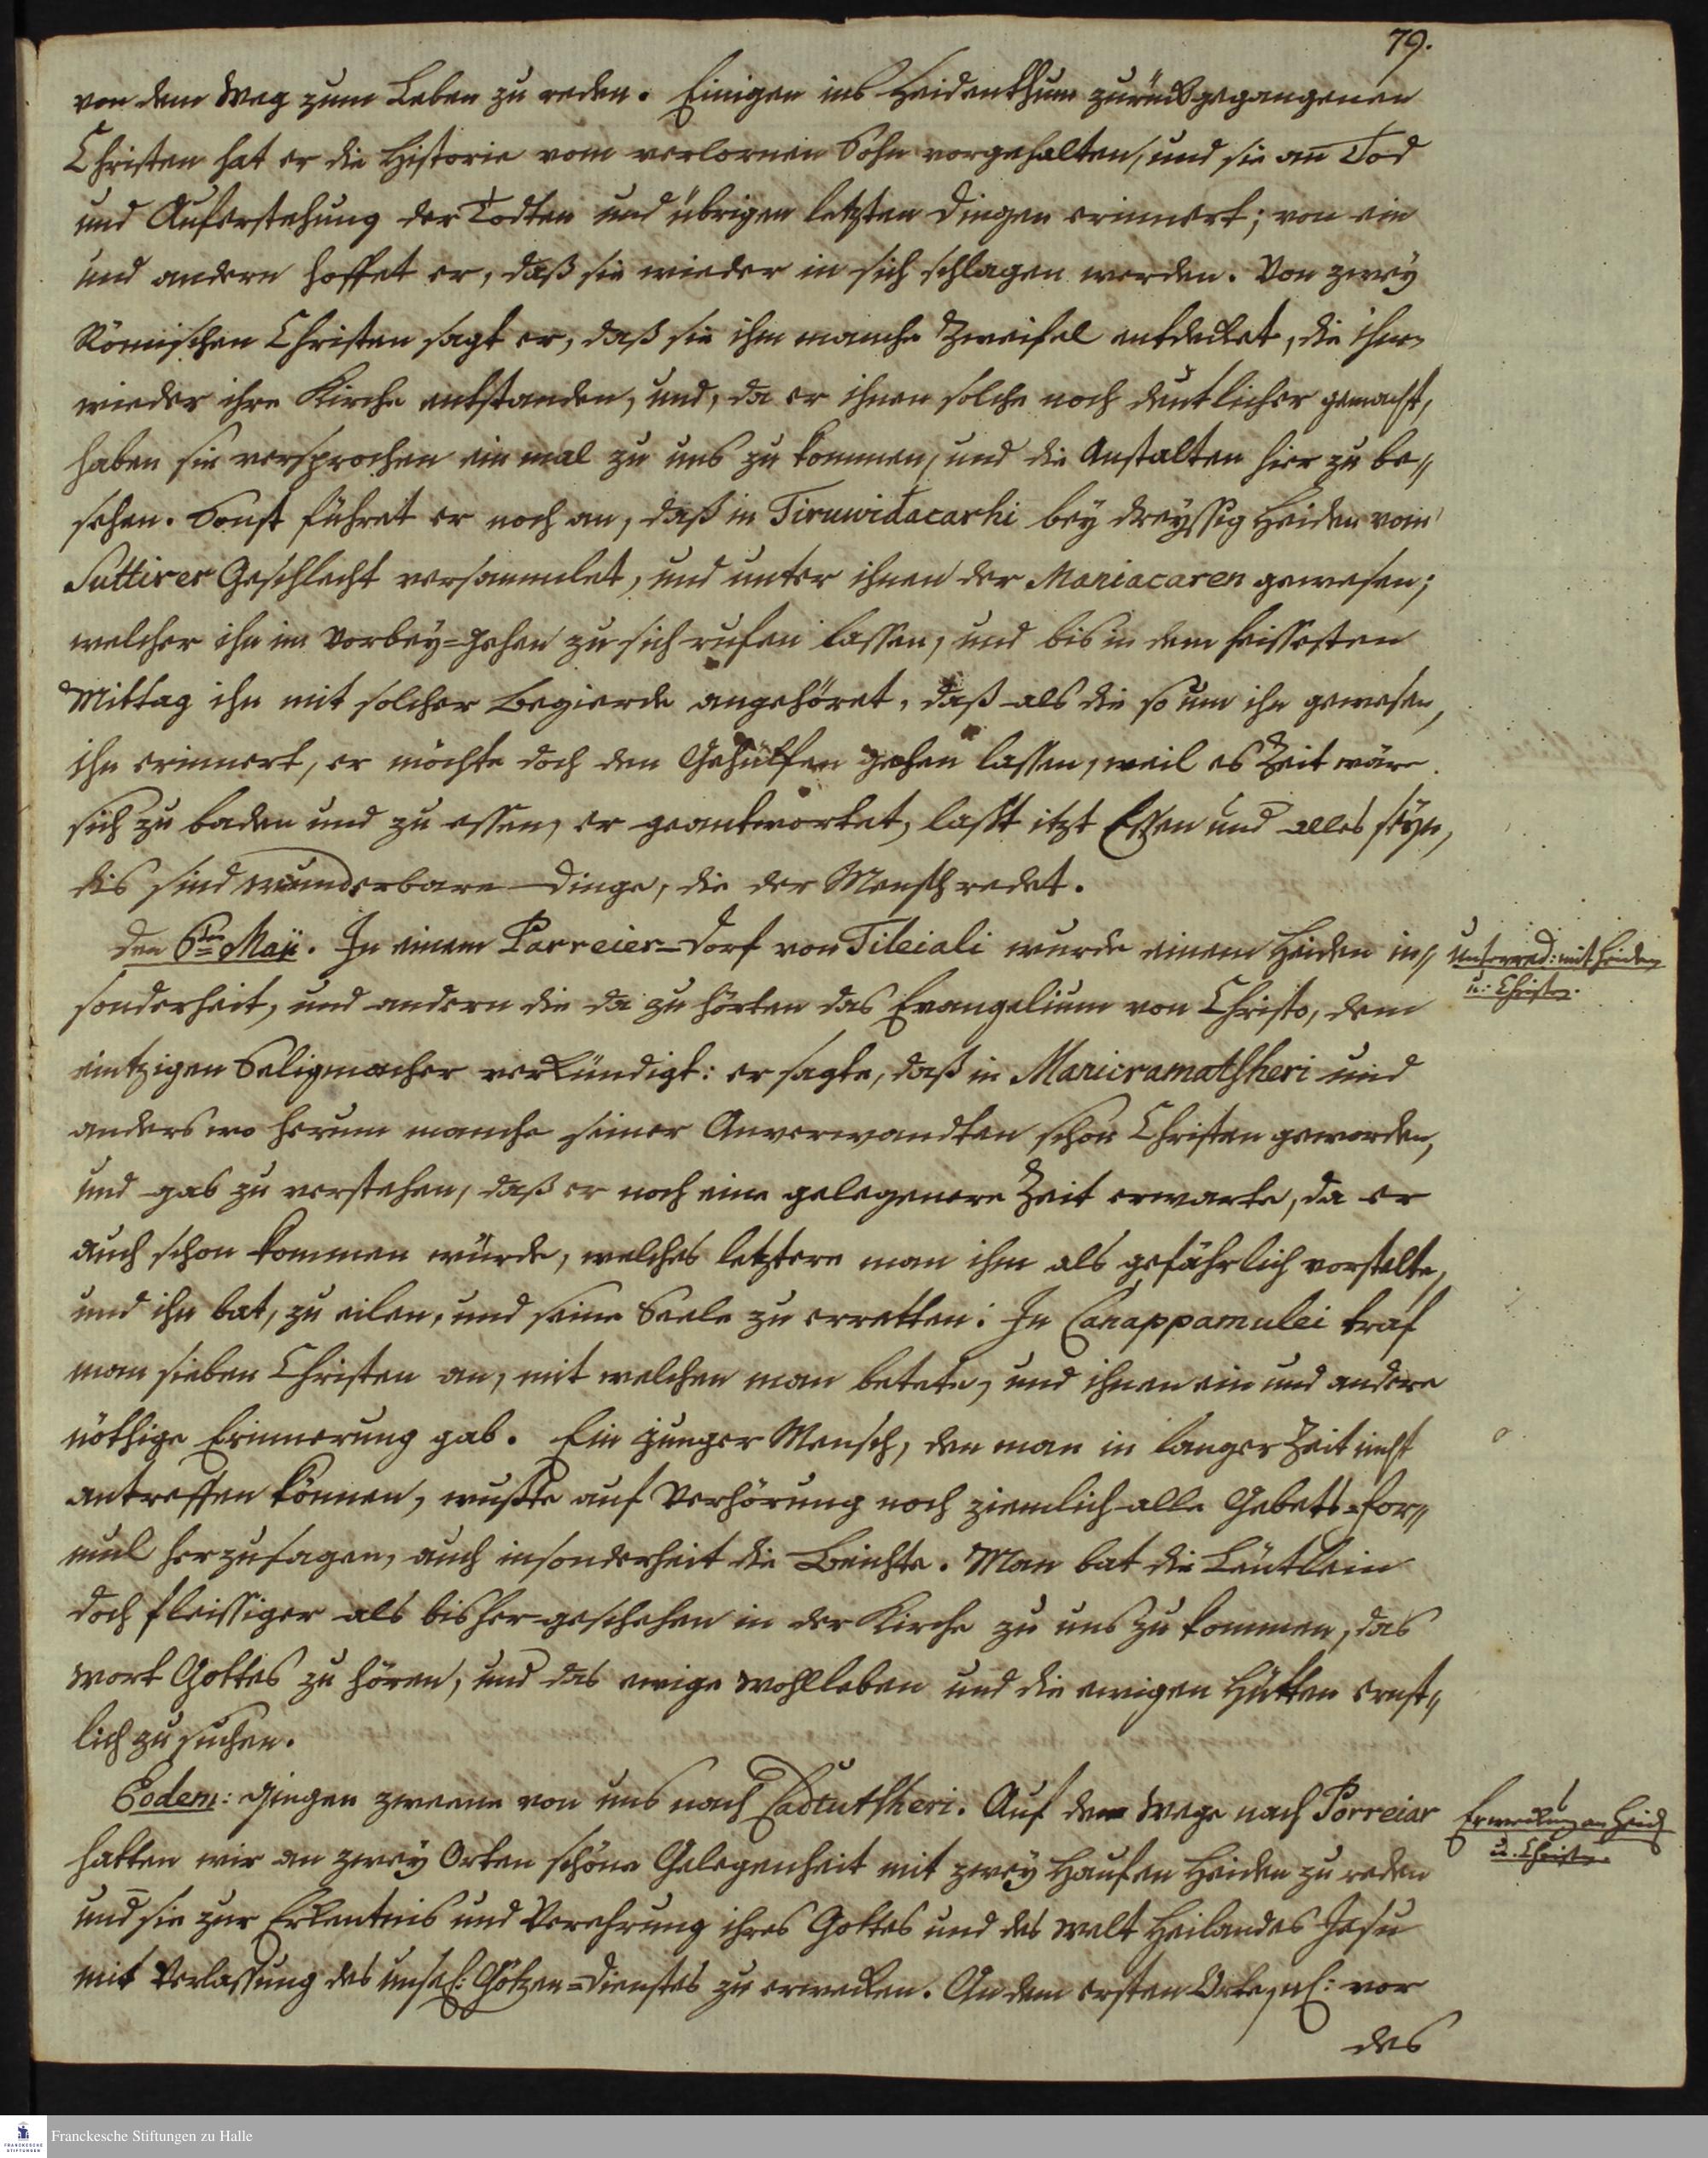 79.
von dem Weg zum Leben zu reden. Einigen ins Heidenthum zurückgegangenen
Christen hat er die Historie vom verlornen Sohn vorgehalten, und sie an Tod
und Auferstehung der Todten und übrigen letzten Dingen erinnert; von ein
und andern hoffet er, daß sie wieder in sich schlagen werden. Von zwey
Römischen Christen sagt er, daß sie ihm manche Zweifel entdecket, die ihnen
wieder ihre Kirche entstanden, und, da er ihnen solche noch deutlicher gemacht,
haben sie versprochen ein mal zu uns zu kommen, und die Anstalten hier zu be//
sehen. Sonst führet er noch an, daß in Tiruwidacarhi bey dreyssig Heiden vom
Suttirer Geschlecht versammlet, und unter ihnen der Maniacaren gewesen;
welcher ihn im Vorbey=gehen zu sich rufen lassen, und bis in dem heissesten
Mittag ihn mit solcher Begierde angehöret, daß als die so um ihn gewesen,
ihn erinnert, er möchte doch den Gehülfen gehen lassen, weil es Zeit wäre
sich zu baden und zu essen, er geantwortet, lasst itzt Essen und alles seyn,
dis sind wunderbare Dinge, die der Mensch redet.
den 6ten Maii. In einem Parreier=Dorf von Tileiali wurde einem Heiden in//
sonderheit, und andern die da zu hörten das Evangelium von Christo, dem
eintzigen Seligmacher verkündigt: er sagte, daß in Manicramatsheri und
anders wo herum manche seiner Anverwandten schon Christen geworden,
und gab zu verstehen, daß er noch eine gelegenere Zeit erwarte, da er
auch schon kommen würde, welches letztere man ihm als gefährlich vorstelte,
und ihn bat, zu eilen, und seine Seele zu erretten: In Canappamulei traf
man sieben Christen an, mit welchen man betete, und ihnen ein und andere
nöthige Erinnerung gab. Ein junger Mensch, den man in langer Zeit nicht
antreffen können, wußte auf Verhörung noch ziemlich alle Gebets=for//
mul herzusagen, auch insonderheit die Beichte. Man bat die Leutlein
doch fleissiger als bisher geschehen in der Kirche zu uns zu kommen, das
Wort Gottes zu hören, und das ewige Wohlleben und die ewigen Hütten ernst//
lich zu suchen.
Eodem: gingen zweene von uns nach Cadtutsheri. Auf dem Wege nach Porreiar
hatten wir an zwey Orten schöne Gelegenheit mit zwey Haufen Heiden zu reden
und sie zur Erkentnis und Verehrung ihres Gottes und des Welt Heilandes Jesu
mit Verlassung des unsel: Götzen=Dienstes zu erwecken. An dem ersten Orte, nl: vor
des
Unterred: mit Heiden
u: Christen.
Erweckung an Heid
u. Christen.
Franckesche Stiftungen zu Halle
FRANCKESCHE
STIFTUNGEN